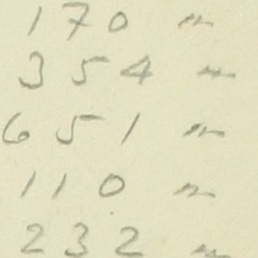 170 "
354 "
651 "
110 "
232 "